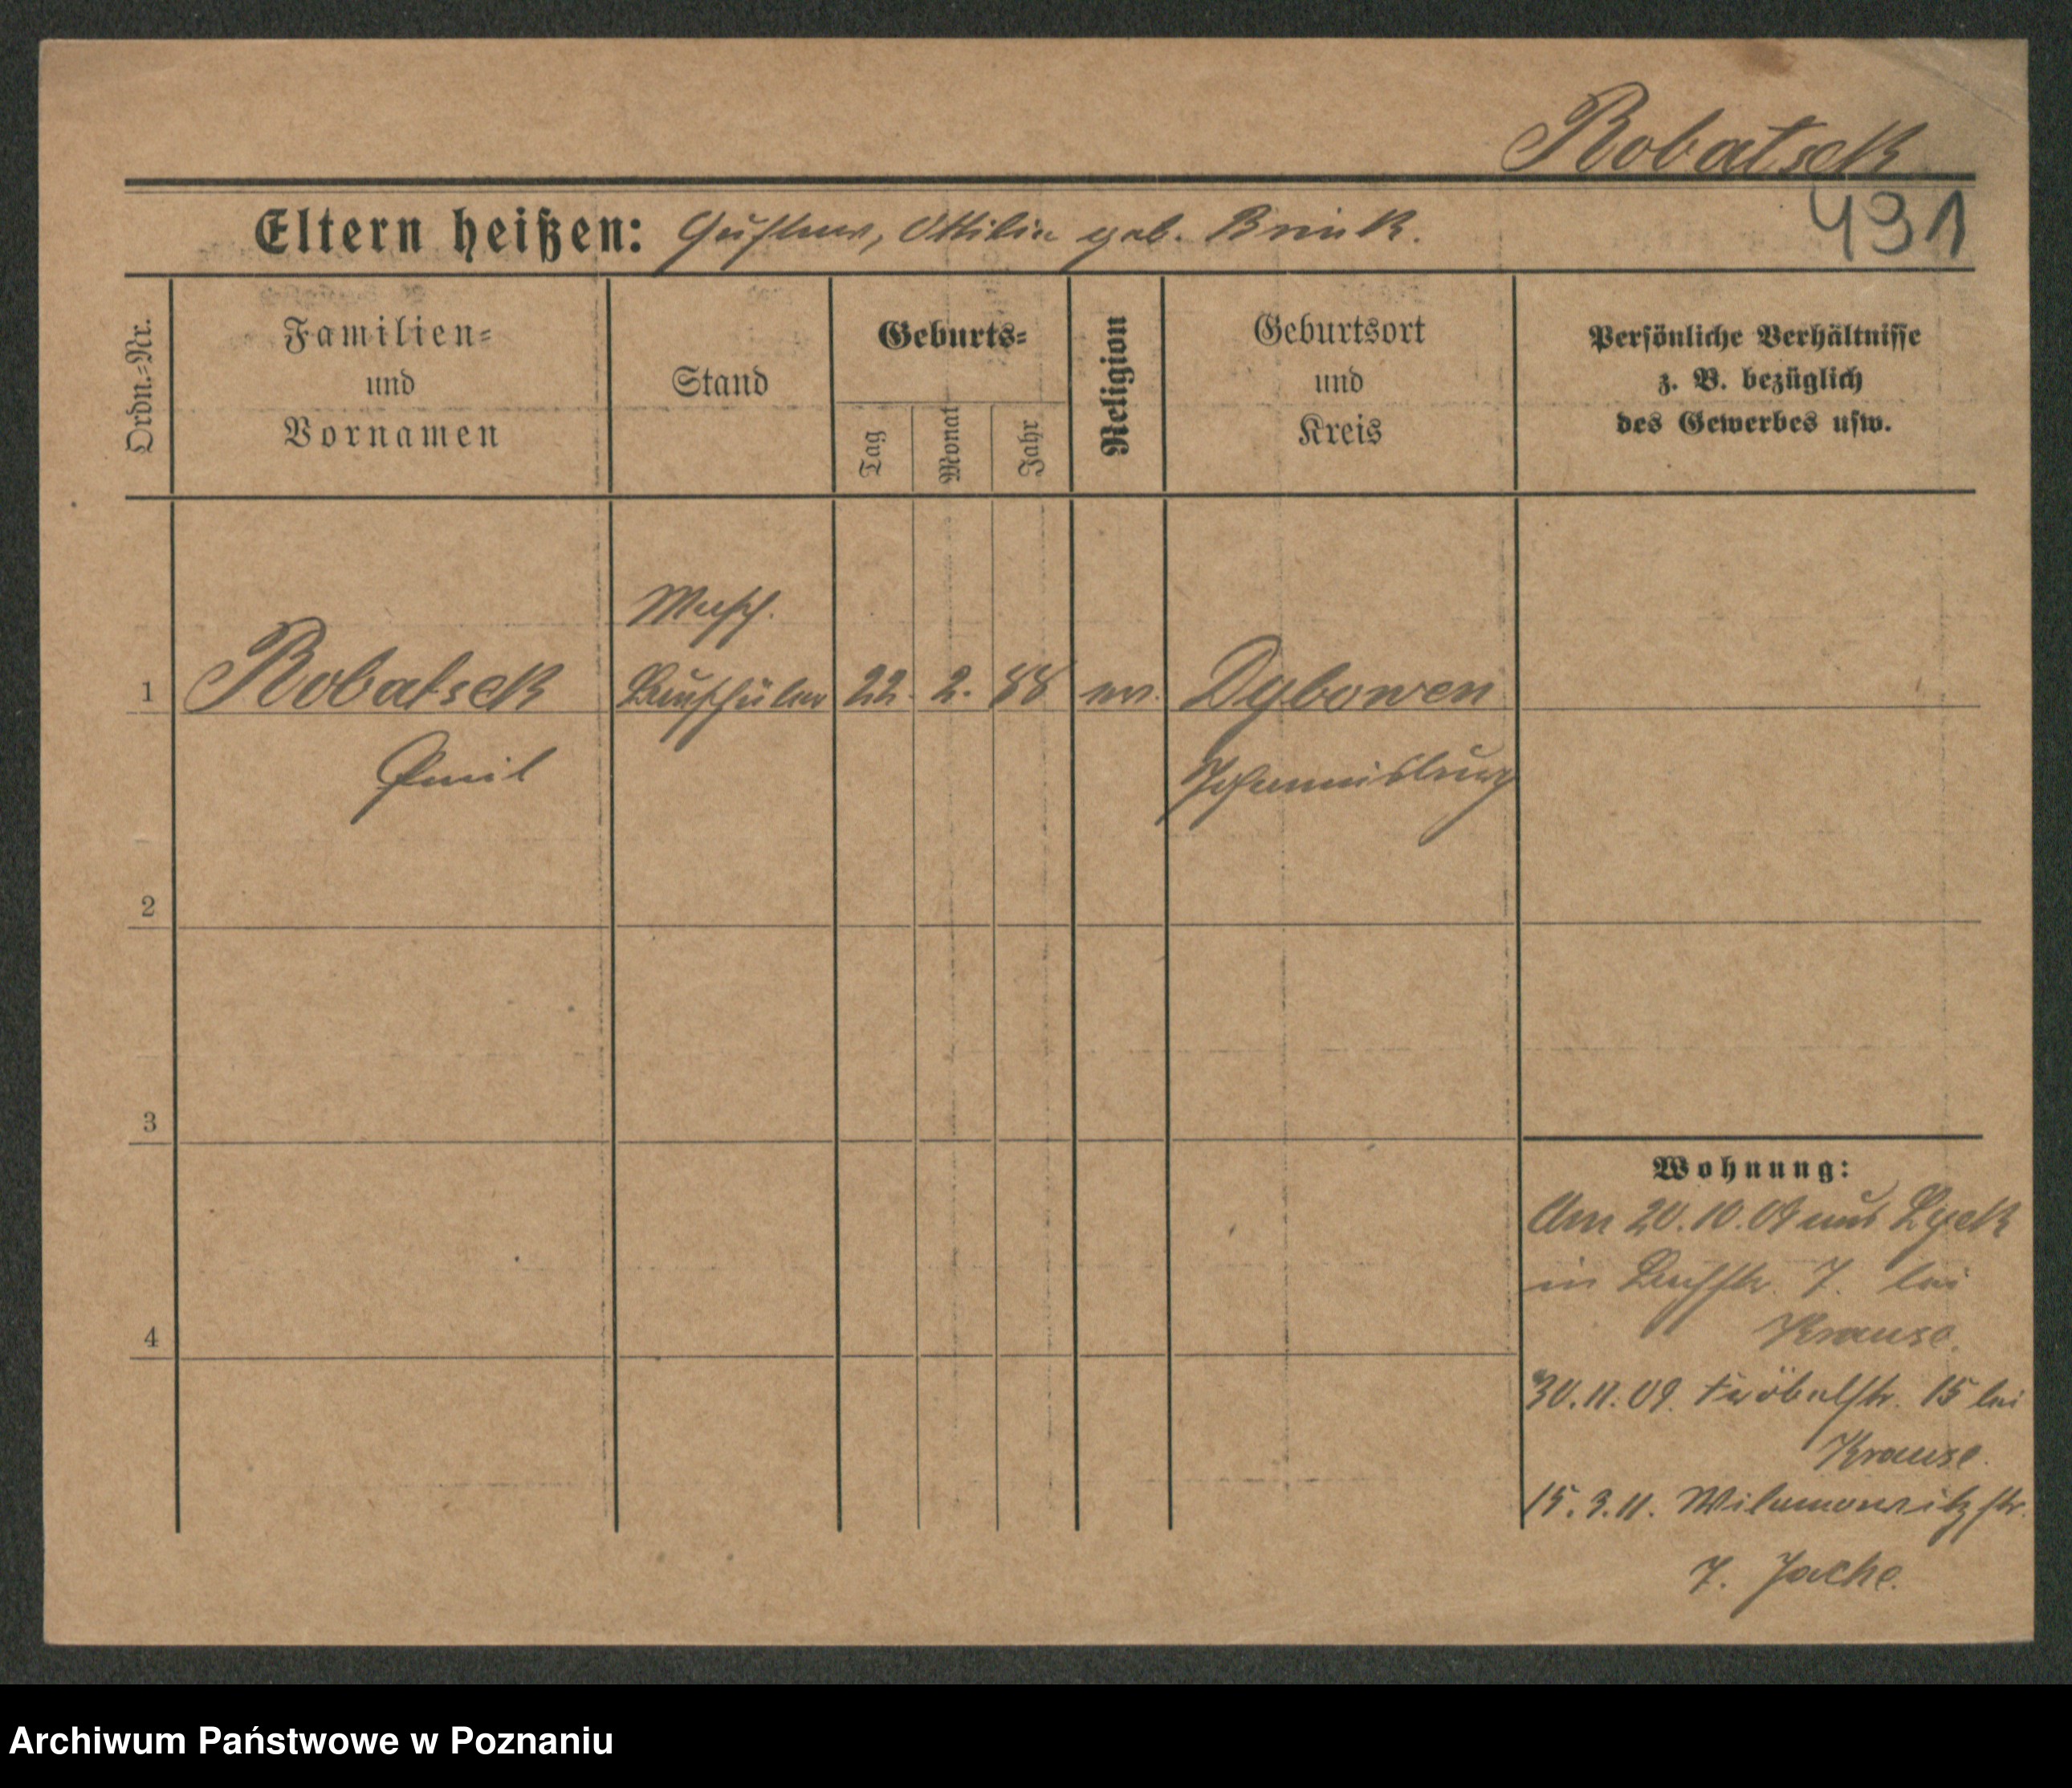 Robatsek
Eltern heißen: Gustav, Ottilie geb. Brink.
491
Ordn.-Nr.
Familien-
und
Vornamen
Stand
Geburts-
Tag
Monat
Jahr
Religion
Geburtsort
und
Kreis
Persönliche Verhältnisse
z. B. bezüglich
des Gewerbes usw.
Masch.
1 Robatsek Bauschüler 22. 2. 88 ev. Dybowen
Emil Johannisburg
2
3
4
Wohnung:
Am 20.10.09 aus Lyck
in 7. bei
Krause.
30.11.09. Fröbelstr. 15 bei
Krause.
15.3.11. Wilamowitzstr.
7. Jache.
Archiwum Państwowe w Poznaniu